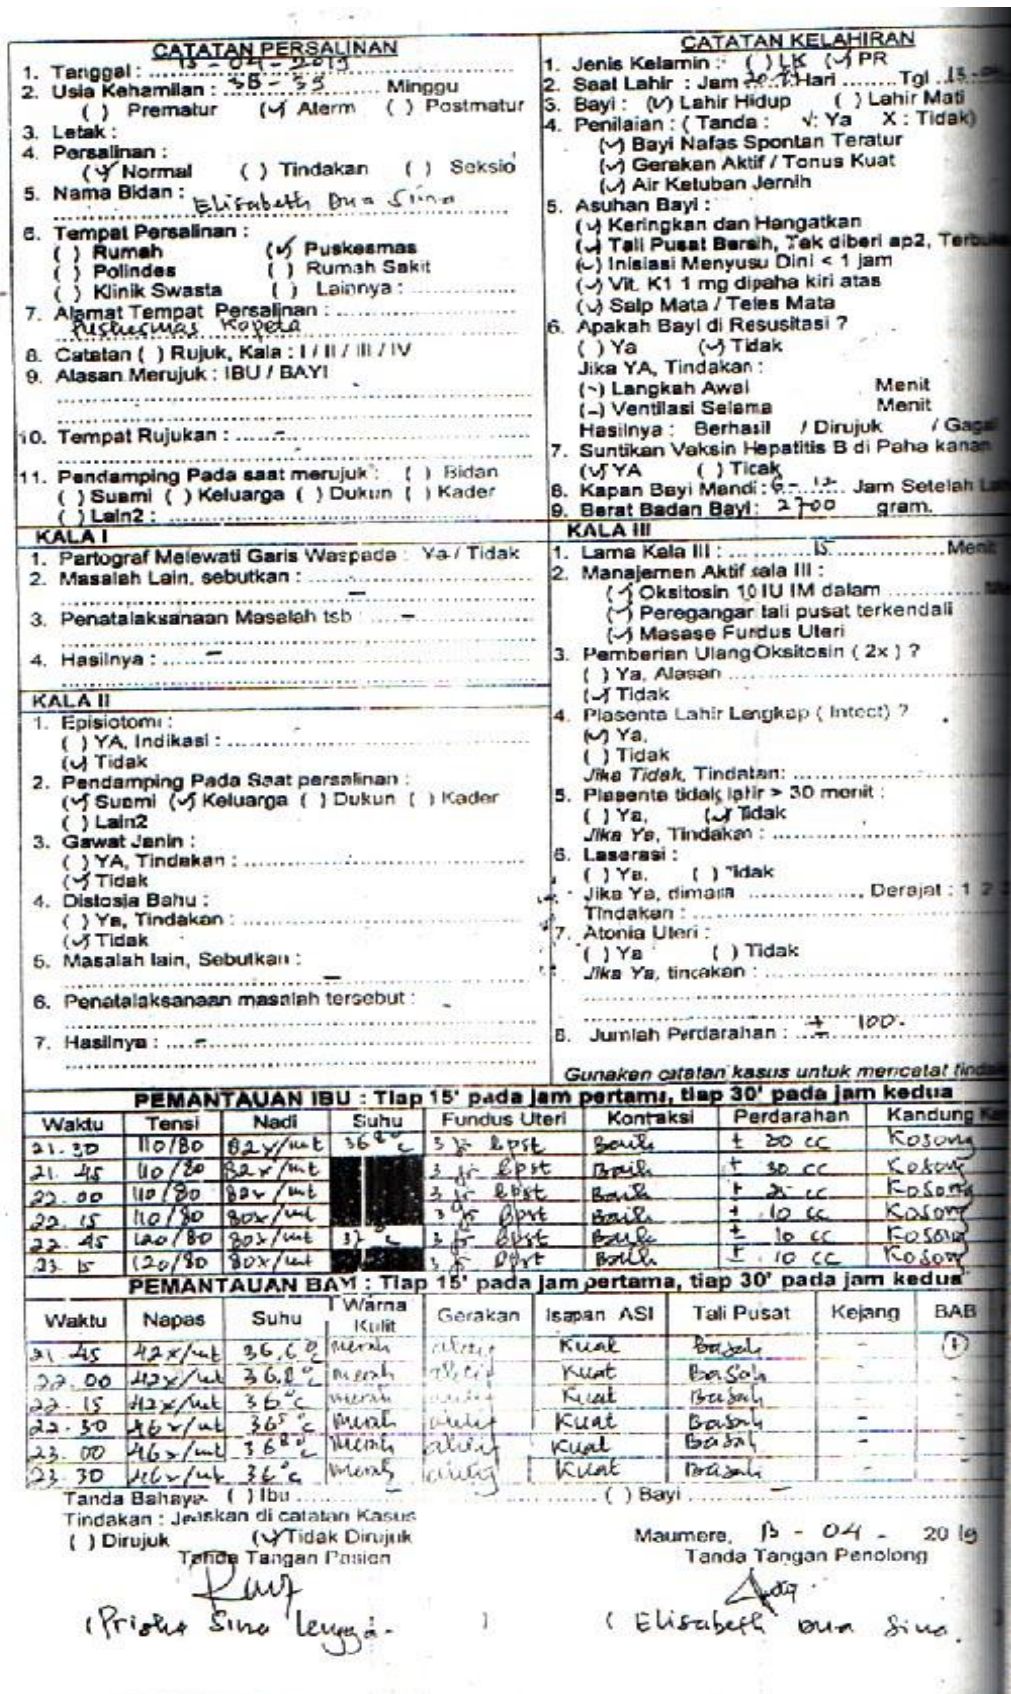 CATATAN PERSALINAN
1. Tanggal : 13 - 04 - 2019
2. Usia Kehamilan : 38 - 39 Minggu
( ) Prematur (✓) Aterm ( ) Postmatur
3. Letak :
4. Persalinan :
(✓) Normal ( ) Tindakan ( ) Seksio
5. Nama Bidan : Elisabeth Dua Sina
6. Tempat Persalinan :
( ) Rumah (✓) Puskesmas
( ) Polindes ( ) Rumah Sakit
( ) Klinik Swasta ( ) Lainnya :
7. Alamat Tempat Persalinan :
Puskesmas Kopeta
8. Catatan ( ) Rujuk, Kala : I / II / III / IV
9. Alasan Merujuk : IBU / BAYI
10. Tempat Rujukan : -
11. Pendamping Pada saat merujuk : ( ) Bidan
( ) Suami ( ) Keluarga ( ) Dukun ( ) Kader
( ) Lain2 :
KALA I
1. Partograf Melewati Garis Waspada : Ya / Tidak
2. Masalah Lain, sebutkan : -
3. Penatalaksanaan Masalah tsb : -
4. Hasilnya : -
KALA II
1. Episiotomi :
( ) YA, Indikasi :
(✓) Tidak
2. Pendamping Pada Saat persalinan :
(✓) Suami (✓) Keluarga ( ) Dukun ( ) Kader
( ) Lain2
3. Gawat Janin :
( ) YA, Tindakan :
(✓) Tidak
4. Distosia Bahu :
( ) Ya, Tindakan :
(✓) Tidak
5. Masalah lain, Sebutkan : -
6. Penatalaksanaan masalah tersebut : -
7. Hasilnya : -
CATATAN KELAHIRAN
1. Jenis Kelamin : ( ) LK (✓) PR
2. Saat Lahir : Jam 20. Hari Tgl 13-
3. Bayi : (✓) Lahir Hidup ( ) Lahir Mati
4. Penilaian : ( Tanda : √: Ya X : Tidak)
(✓) Bayi Nafas Spontan Teratur
(✓) Gerakan Aktif / Tonus Kuat
(✓) Air Ketuban Jernih
5. Asuhan Bayi :
(✓) Keringkan dan Hangatkan
(✓) Tali Pusat Bersih, Tak diberi ap2, Terbuk
(✓) Inisiasi Menyusu Dini < 1 jam
(✓) Vit. K1 1 mg dipaha kiri atas
(✓) Salp Mata / Tetes Mata
6. Apakah Bayi di Resusitasi ?
( ) Ya (✓) Tidak
Jika YA, Tindakan :
(-) Langkah Awal Menit
(-) Ventilasi Selama Menit
Hasilnya : Berhasil / Dirujuk / Gagal
7. Suntikan Vaksin Hepatitis B di Paha kanan
(✓) YA ( ) Ticak
8. Kapan Bayi Mandi : 6 - 12 Jam Setelah La
9. Berat Badan Bayi : 2700 gram.
KALA III
1. Lama Kala III : 15 Menit
2. Manajemen Aktif kala III :
(✓) Oksitosin 10 IU IM dalam
(✓) Peregangan tali pusat terkendali
(✓) Masase Fundus Uteri
3. Pemberian Ulang Oksitosin ( 2x ) ?
( ) Ya, Alasan
(✓) Tidak
4. Plasenta Lahir Lengkap ( Intect) ?
(✓) Ya,
( ) Tidak
Jika Tidak, Tindakan:
5. Plasenta tidak lahir > 30 menit :
( ) Ya, (✓) Tidak
Jika Ya, Tindakan :
6. Laserasi :
( ) Ya, ( ) Tidak
Jika Ya, dimana Derajat : 1 2 3
Tindakan :
7. Atonia Uteri :
( ) Ya ( ) Tidak
Jika Ya, tindakan :
8. Jumlah Perdarahan : ± 100.
Gunakan catatan kasus untuk mencatat tindak
PEMANTAUAN IBU : Tiap 15' pada jam pertama, tiap 30' pada jam kedua
Waktu Tensi Nadi Suhu Fundus Uteri Kontraksi Perdarahan Kandung Ke
21.30 110/80 82x/mt 36 8°c 3 jr bpst Baik ± 30 cc Kosong
21.45 110/80 82x/mt 3 jr bpst Baik ± 30 cc Kosong
22.00 110/80 80x/mt 3 jr bpst Baik ± 25 cc Kosong
22.15 110/80 80x/mt 3 jr bpst Baik ± 10 cc Kosong
22.45 120/80 80x/mt 37 °c 3 jr bpst Baik ± 10 cc Kosong
23.15 120/80 80x/mt 3 jr bpst Baik ± 10 cc Kosong
PEMANTAUAN BAYI : Tiap 15' pada jam pertama, tiap 30' pada jam kedua
Waktu Napas Suhu Warna Kulit Gerakan Isapan ASI Tali Pusat Kejang BAB
21.45 42x/mt 36,6° merah aktif Kuat Basah - (+)
22.00 42x/mt 36,8°c merah aktif Kuat Basah -
22.15 42x/mt 36°c merah aktif Kuat Basah -
22.30 46x/mt 36 5°c merah aktif Kuat Basah -
23.00 46x/mt 36 8°c merah aktif Kuat Basah -
23.30 46x/mt 36°c merah aktif Kuat Basah -
Tanda Bahaya ( ) Ibu - ( ) Bayi -
Tindakan : Jelaskan di catatan Kasus
( ) Dirujuk (✓) Tidak Dirujuk
Maumere, 13 - 04 - 2019
Tanda Tangan Pasien Tanda Tangan Penolong
( Elisabeth Dua Sina.